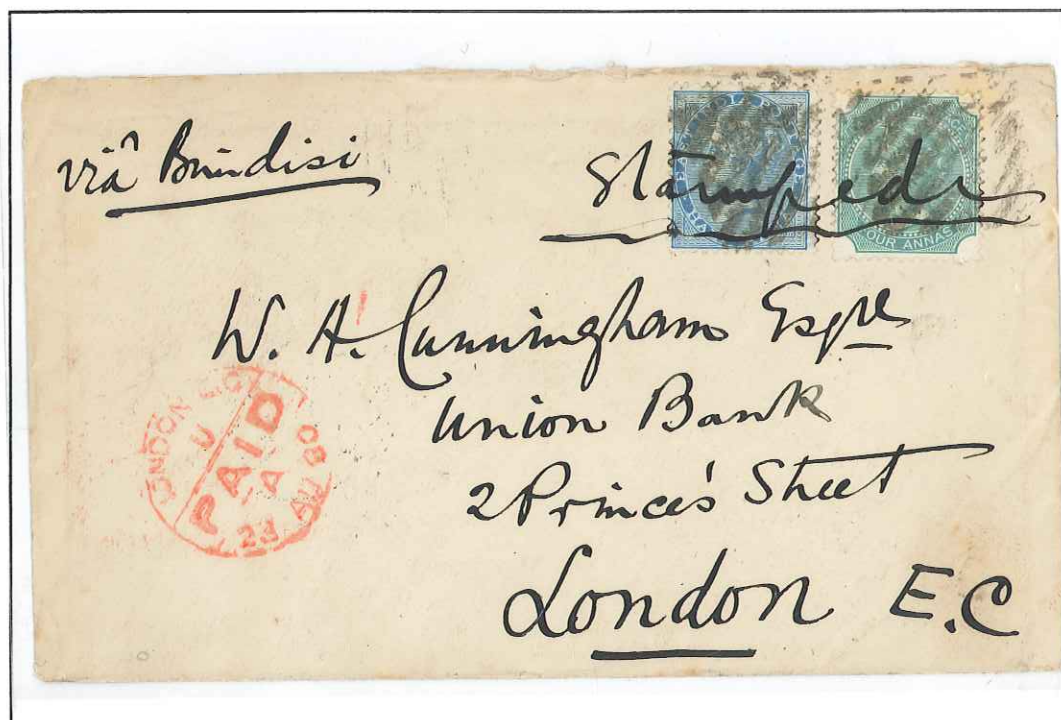 viâ Brindisi
Stamped
FOUR ANNAS
W. H. Cunningham Esqre
Union Bank
2 Prince's Street
London E.C
LONDON E.C
PAID
23 AU 80